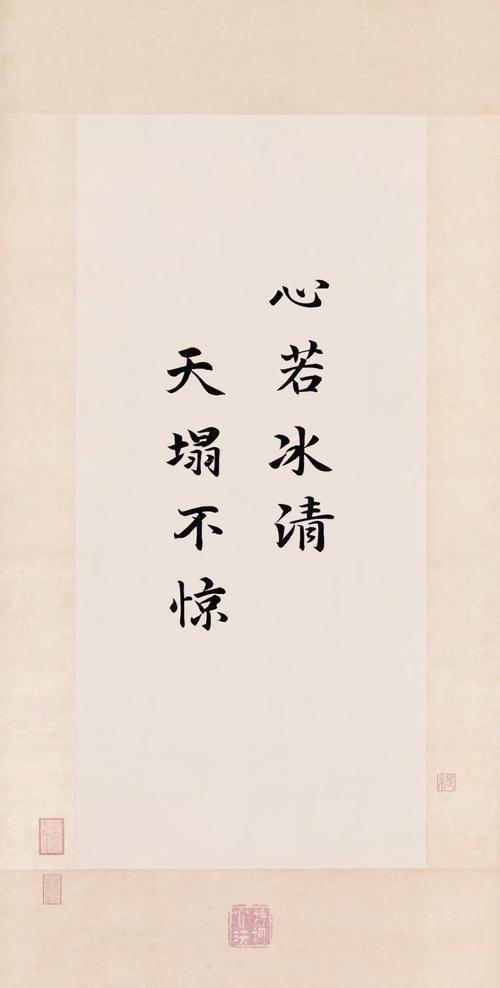 心若冰清
天塌不惊